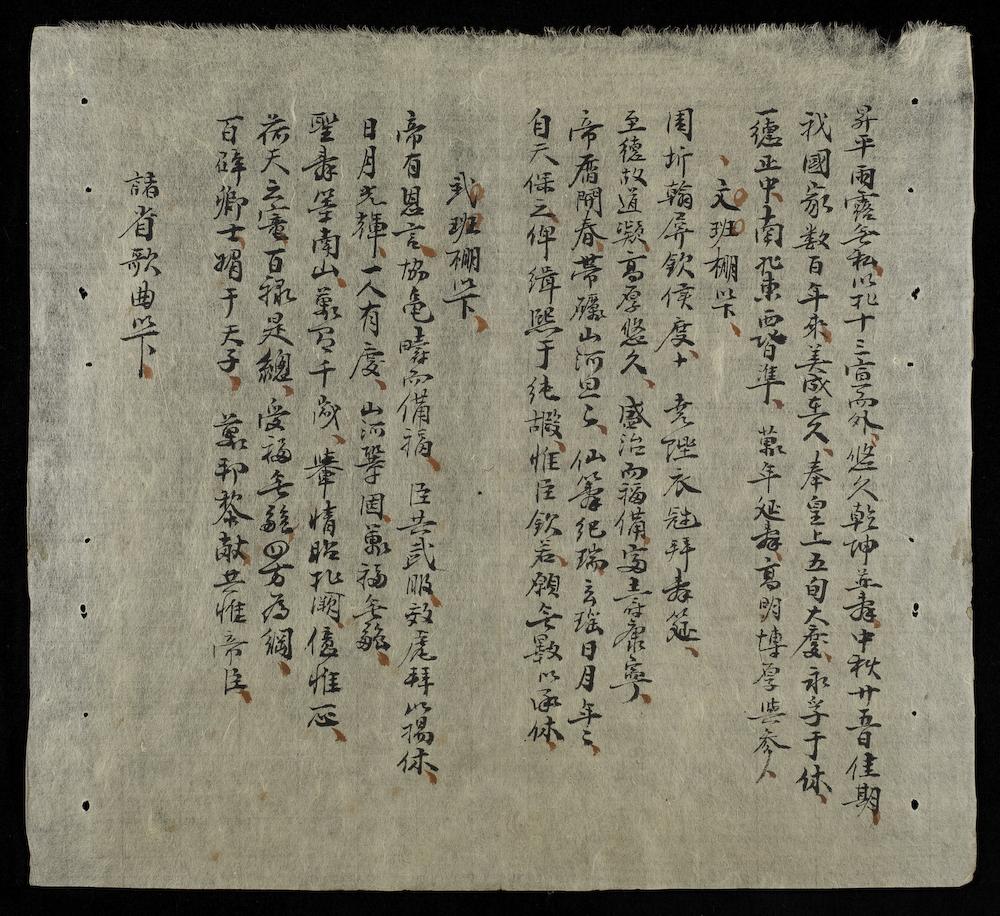 昇平雨露無私以北十三宣而外悠久乾坤並壽中秋廿五日佳期
我國家数百年來美成在久奉皇上五旬大慶永孚于休
一德正中南北東西皆準萬年延壽高明博厚與參
文班棚以下
周圻翰屏欽侯度 堯陛衣冠拜壽筵
至德故道凝高厚悠久盛治而福備富壽康寧
帝曆開春帶礪山河旦旦仙籌紀瑞 日月年年
自天保之俾緝熙于純嘏惟臣欽若願無斁以承休
武班棚以下
帝有恩言協龜疇而備福臣共武服效虎拜以揚休
日月光輝一人有慶山河鞏固萬福無
聖壽等南山萬有千歲 情昭北闕億惟
荷天之寵百祿是總受福無 四方為綱
百辟卿士媚于天子萬邦黎獻共惟帝臣
諸省歌曲以下